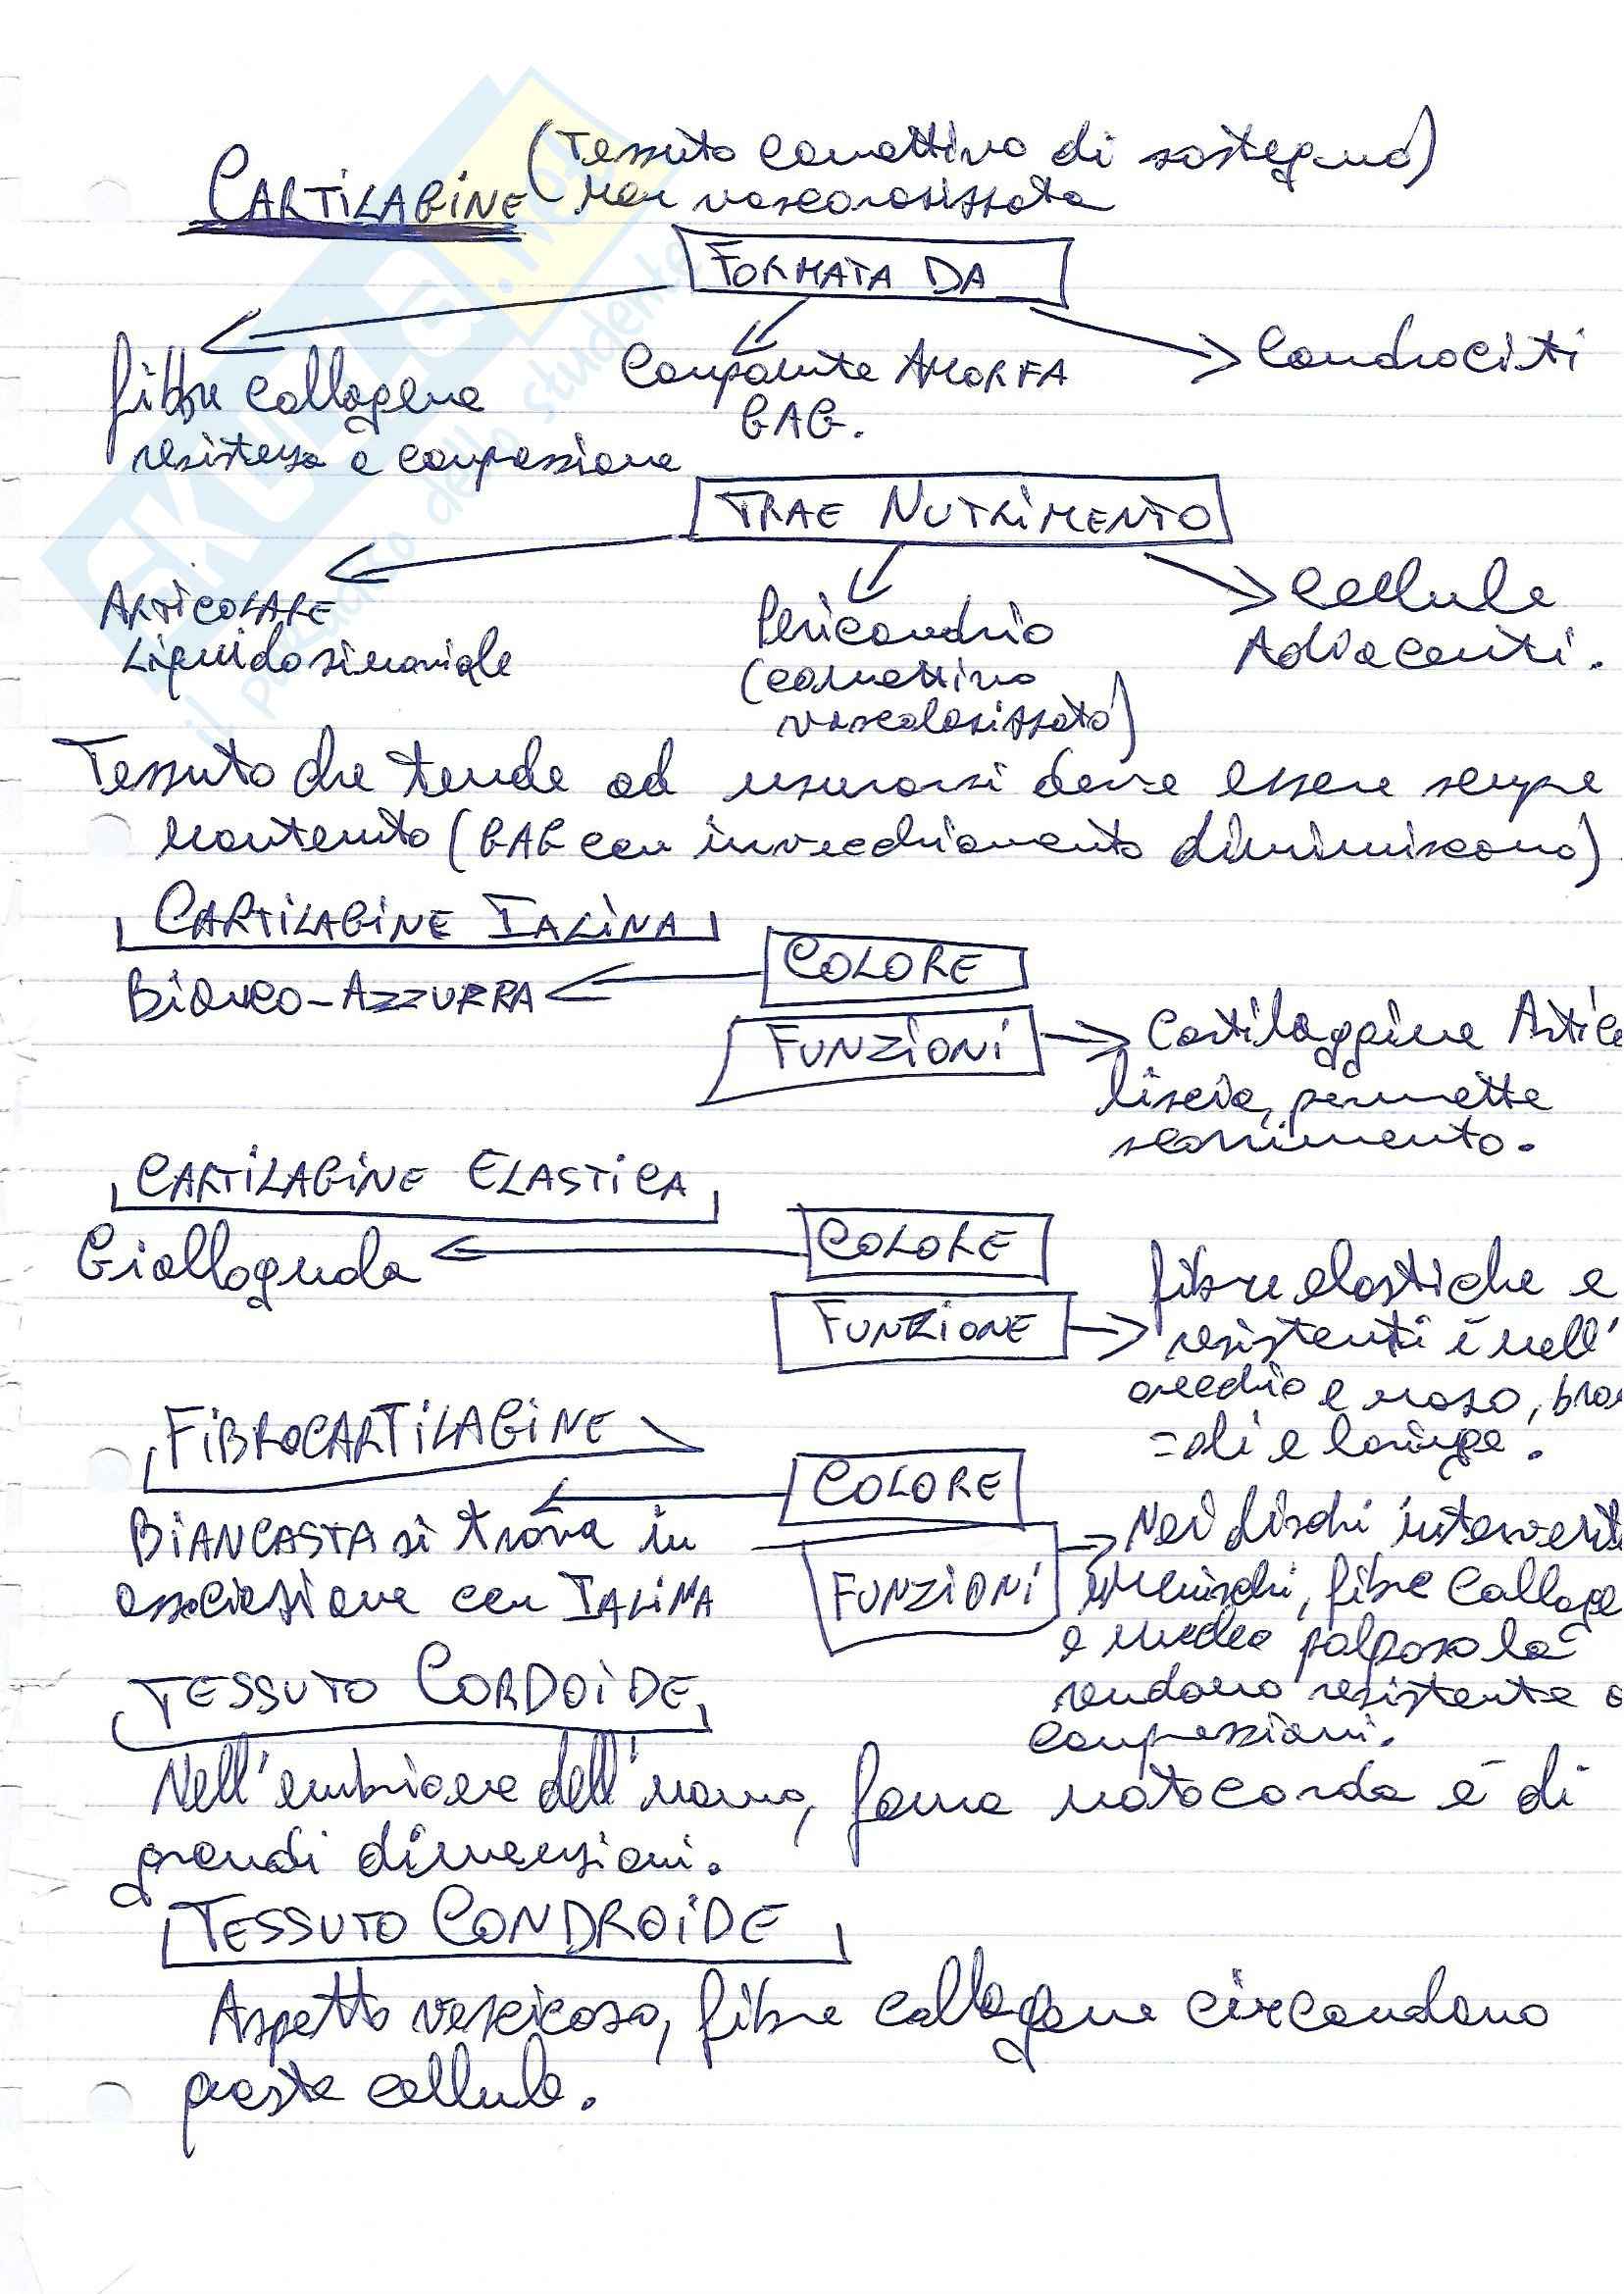 CARTILAGINE (Tessuto connettivo di sostegno)
non vascolarizzato
FORMATA DA
fibre collagene
resistenza a compressione
Componente AMORFA
GAG.
Condrociti
TRAE NUTRIMENTO
ARTICOLARE
Liquido sinoviale
Pericondrio
(connettivo
vascolarizzato)
Cellule
Adiacenti.
Tessuto che tende ad usurarsi deve essere sempre
mantenuto (GAG con invecchiamento diminuiscono)
CARTILAGINE IALINA
COLORE
Bianco-AZZURRA
FUNZIONI
Cartilaggine Artico
liscia, permette
scorrimento.
CARTILAGINE ELASTICA
COLORE
Giallognola
FUNZIONE
fibre elastiche e
resistenti è nell'
orecchio e naso, bron
=chi e laringe.
FIBROCARTILAGINE
COLORE
BIANCASTA si trova in
associazione con IALINA
FUNZIONI
Nei dischi intervert
menischi, fibre collage
e nucleo polposo la
rendono resistente a
compressioni.
TESSUTO CORDOIDE
Nell'embrione dell'uomo, forma notocorda è di
grandi dimensioni.
TESSUTO CONDROIDE
Aspetto vescicoso, fibre collagene circondano
queste cellule.
SKUOLA.NET
il paradiso dello studente